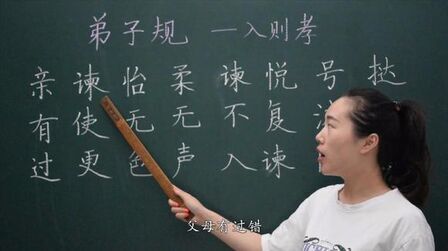 弟子规 —入则孝
亲有过
谏使更
怡无色
柔无声
谏不入
悦复谏
号
挞
父母有过错